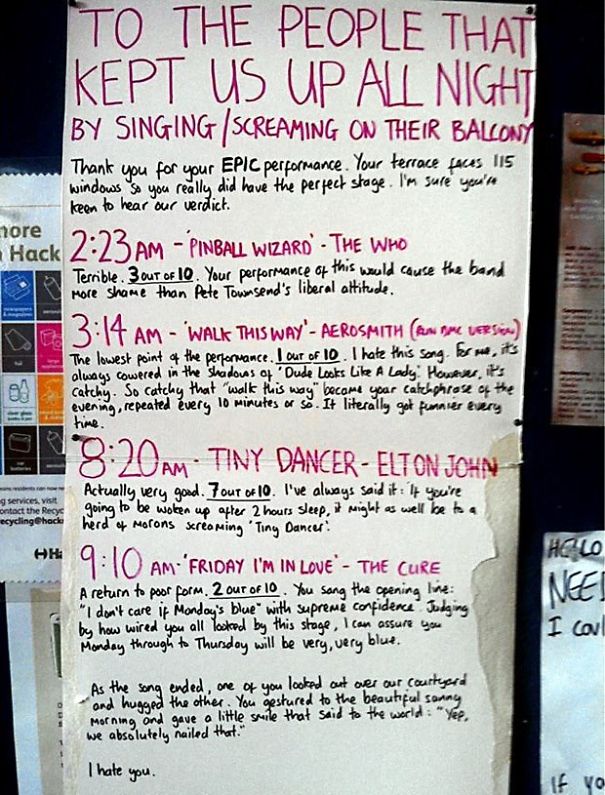 TO THE PEOPLE THAT
KEPT US UP ALL NIGHT
BY SINGING/SCREAMING ON THEIR BALCONY
Thank you for your EPIC performance. Your terrace faces 115
windows so you really did have the perfect stage. I'm sure you're
keen to hear our verdict.
2:23AM - 'PINBALL WIZARD' - THE WHO
Terrible. 3 OUT OF 10. Your performance of this would cause the band
more shame than Pete Townsend's liberal attitude.
3:14 AM - 'WALK THIS WAY' - AEROSMITH (RUN DMC VERSION)
The lowest point of the performance. 1 out of 10. I hate this song. For me, it's
always cowered in the shadows of 'Dude Looks Like A Lady'. However, it's
catchy. So catchy that "walk this way" became your catchphrase of the
evening, repeated every 10 minutes or so. It literally got funnier every
time.
8:20AM - TINY DANCER - ELTON JOHN
Actually very good. 7 OUT OF 10. I've always said it: 'If you're
going to be woken up after 2 hours sleep, it might as well be to a
herd of morons screaming 'Tiny Dancer'.
9:10 AM - 'FRIDAY I'M IN LOVE' - THE CURE
A return to poor form. 2 OUT OF 10. You sang the opening line:
"I don't care if Monday's blue" with supreme confidence. Judging
by how wired you all looked by this stage, I can assure you
Monday through to Thursday will be very, very blue.
As the song ended, one of you looked out over our courtyard
and hugged the other. You gestured to the beautiful sunny
morning and gave a little smile that said to the world: "Yep,
we absolutely nailed that."
I hate you.
more
Hack
g services, visit
ontact the Recyc
ecycling@hack
HELLO
NEE
I COUL
If yo